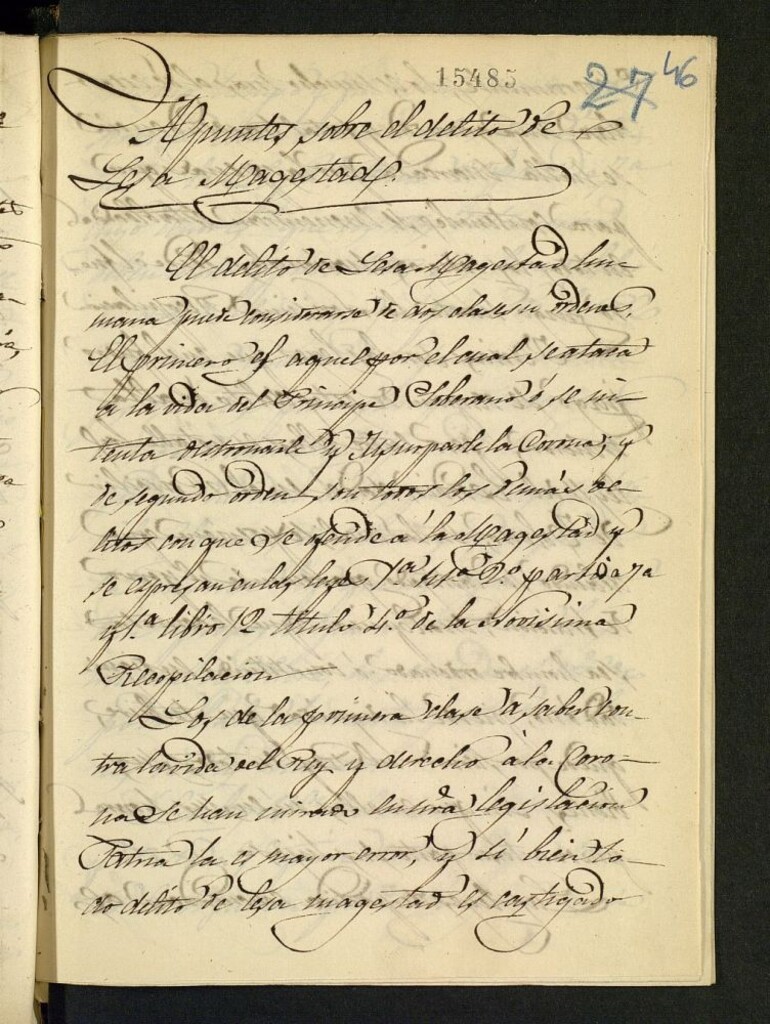 15485
27 46
Apuntes sobre el delito de
Lesa Magestad.
El delito de Lesa Magestad hu-
mana puede considerarse de dos clases u ordenes.
El primero es aquel por el cual se ataca
a la vida del Principe Soberano ó se in-
tenta destronarle y Usurparle la Corona; y
de segundo orden son todos los demás de-
litos con que se ofende á la Magestad y
se espresan en las leyes 1ª titº 2º partida 7a
y 1ª libro 12 titulo 4º de la Novisima
Recopilacion
Los de la primera clase á saber con-
tra la vida del Rey y derecho á la Coro-
na se han mirado en nrā legislacion
Patria la es mayor error, y si bien to-
do delito de lesa magestad es castigado